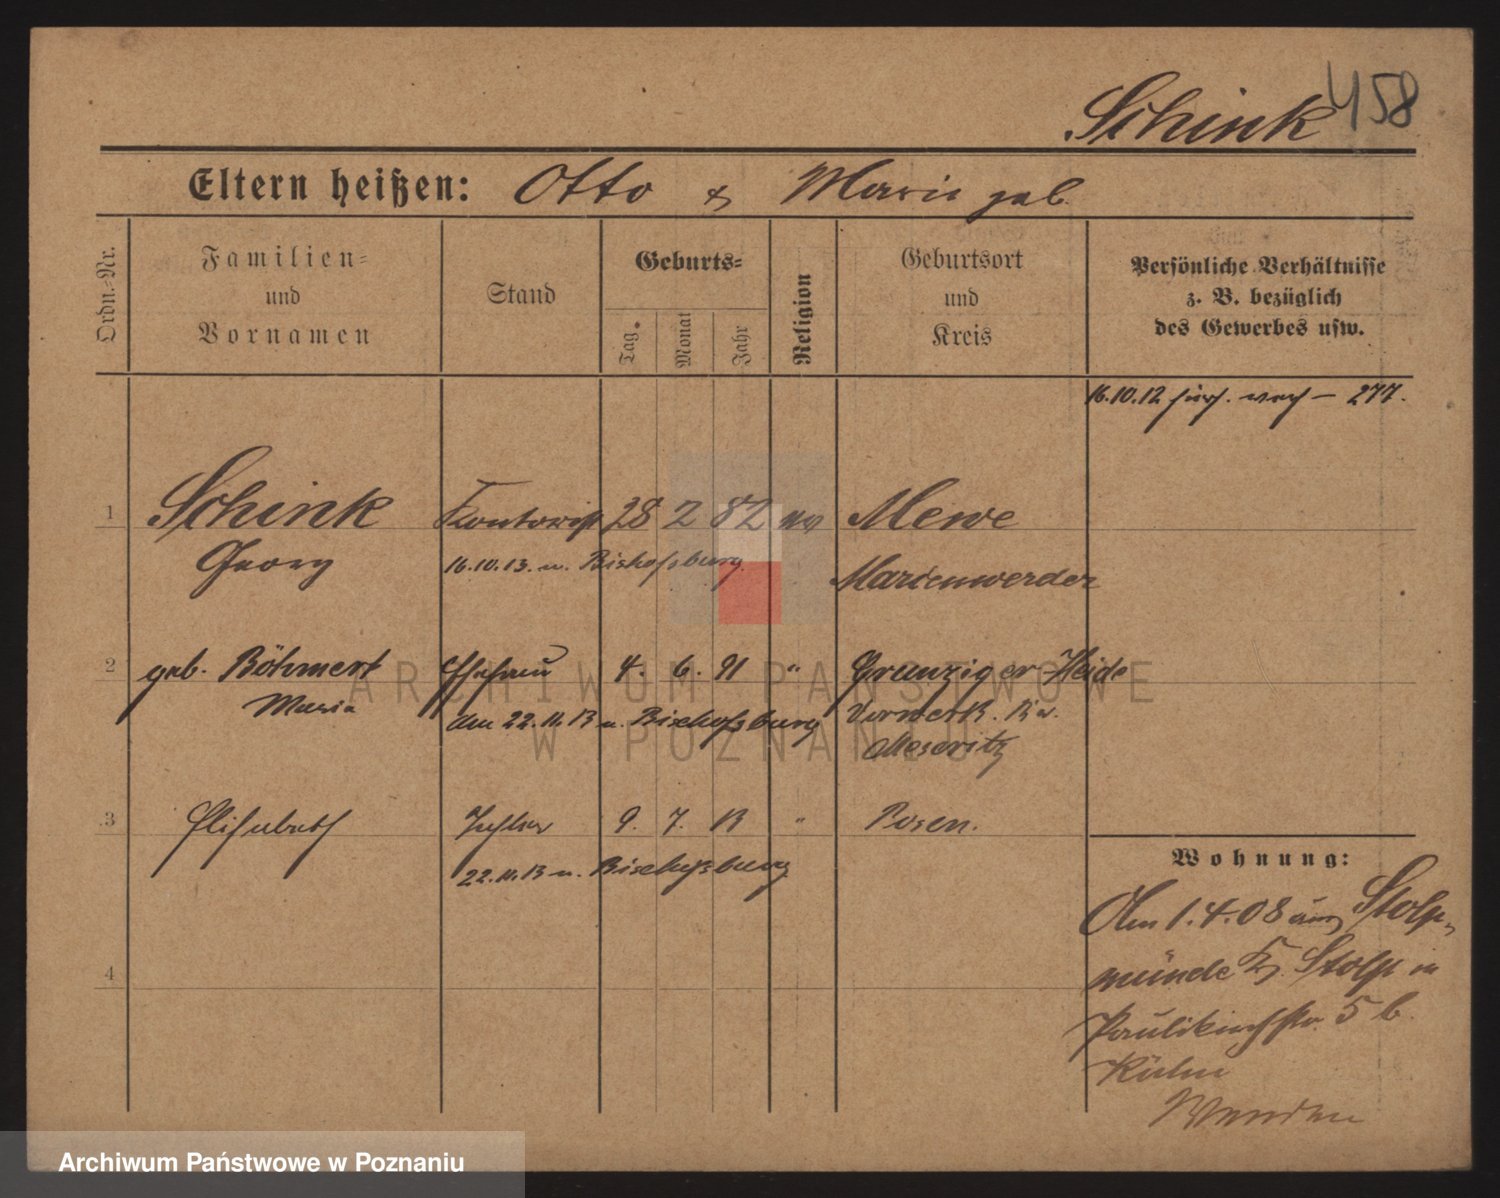 Schink 458
Eltern heißen: Otto & Marie geb.
Ordn.-Nr.
Familien-
und
Vornamen
Stand
Geburts-
Tag.
Monat
Jahr
Religion
Geburtsort
und
Kreis
Persönliche Verhältnisse
z. B. bezüglich
des Gewerbes usw.
16.10.12 277.
1 Schink Kontorist 28 2 82 ev Mewe
Georg 16.10.13. n. Bischofsburg Marienwerder
2 geb. Böhmert Ehefrau 4. 6. 91 " Grunziger-Heide
Maria den 22.11.13 n. Bischofsburg Vorwerk. Kr.
Meseritz
3 Elisabeth Tochter 9. 7. 13 " Posen.
22.11.13 n. Bischofsburg
4
Wohnung:
Am 1.4.08 aus Stolp-
münde Kr. Stolp in
Paulikirchstr. 5 b.
Wenden
ARCHIWUM PAŃSTWOWE
W POZNANIU
Archiwum Państwowe w Poznaniu